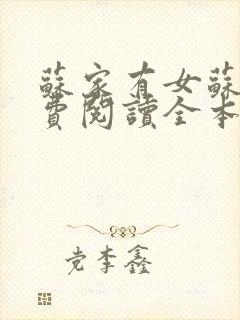 蘇家有女蘇
費閱讀全本
党李鑫